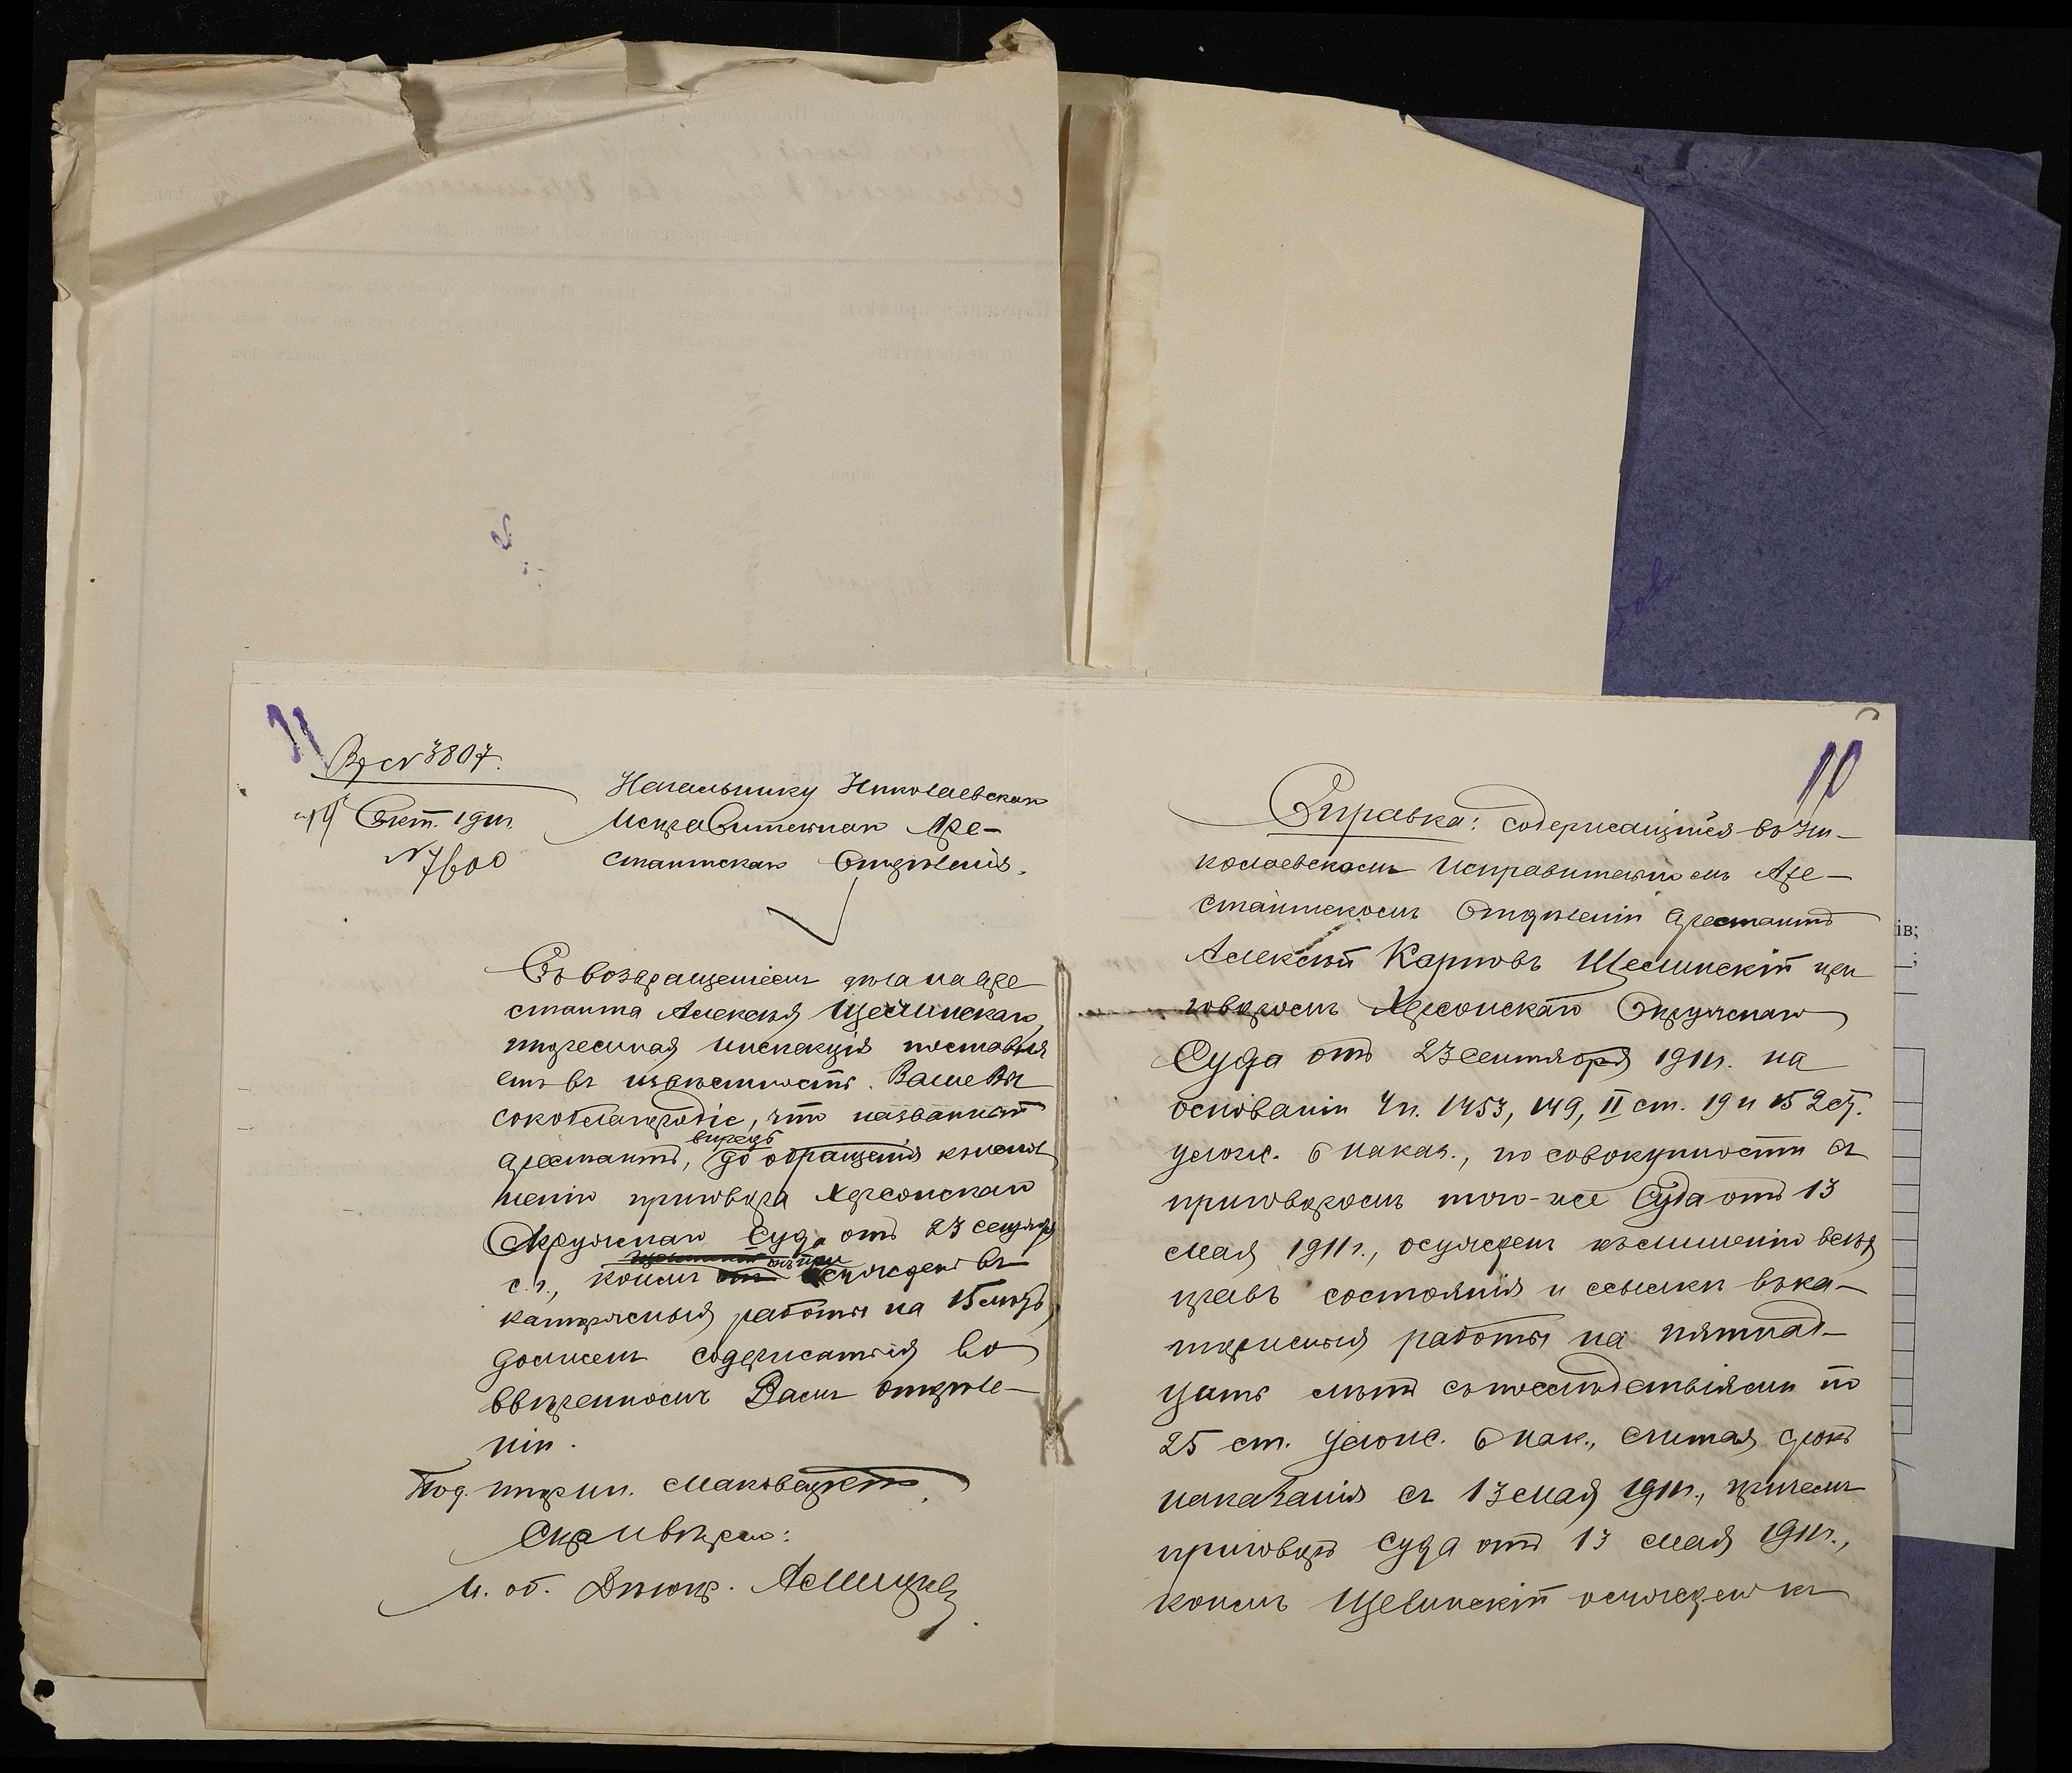 11
Вх № 3807.
14 Окт. 1911 г.
№ 7600
Начальнику Николаевскаго
Исправительнаго Аре-
стантскаго Отдѣленія.
Съ возвращеніемъ дѣла на аре
станта Алексѣя Щеслинскаго,
тюремная инспекція поставля
етъ въ извѣстность Ваше Вы
сокоблагородіе, что названный
арестантъ, впредь до обращенія къ испол
ненію приговора Херсонскаго
Окружнаго Суда отъ 23 сентября
с. г., коимъ онъ осужденъ въ
каторжныя работы на 15 лѣтъ,
долженъ содержаться во
ввѣренномъ Вамъ отдѣле-
ніи.
Под. тюрем. ин. Маковецкій
Скрѣп. и вѣрно:
И. об. Дѣлопр.
10
Справка: содержащійся въ Ни-
колаевскомъ Исправительномъ Аре-
стантскомъ Отдѣленіи арестантъ
Алексѣй Карповъ Щеслинскій при
говоромъ Херсонскаго Окружнаго
Суда отъ 23 сентября 1911 г. на
основаніи 4 п. 1453, 149, II ст. 19 и 152 ст.
улож. о наказ., по совокупности съ
приговоромъ того-же Суда отъ 13
мая 1911 г., осужденъ къ лишенію всѣхъ
правъ состоянія и ссылки въ ка-
торжныя работы на пятнад-
цать лѣтъ съ послѣдствіями по
25 ст. улож. о нак., считая срокъ
наказанія съ 13 мая 1911 г., причемъ
приговоръ Суда отъ 13 мая 1911 г.,
коимъ Щеслинскій осужденъ къ
ів;